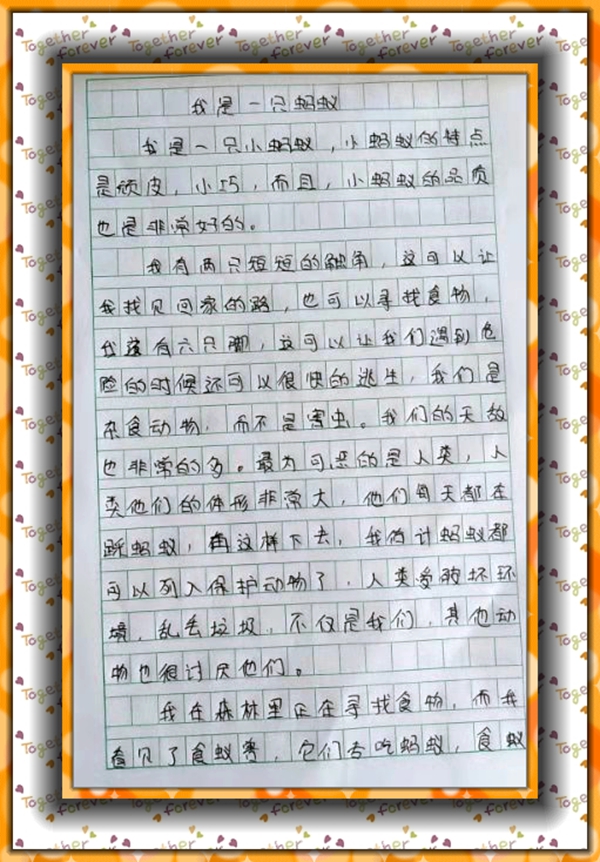 我是一只蚂蚁
我是一只小蚂蚁，小蚂蚁的特点
是顽皮，小巧，而且，小蚂蚁的品质
也是非常好的。
我有两只短短的触角，这可以让
我找见回家的路，也可以寻找食物，
我还有六只脚，这可以让我们遇到危
险的时候还可以很快的逃生，我们是
杂食动物，而不是害虫。我们的天敌
也非常的多。最为可恶的是人类，人
类他们的体形非常大，他们每天都在
踩蚂蚁，再这样下去，我估计蚂蚁都
可以列入保护动物了，人类爱破坏环
境，乱丢垃圾，不仅是我们，其他动
物也很讨厌他们。
我在森林里正在寻找食物，而我
看见了食蚁兽，它们去吃蚂蚁，食蚁
Together
forever